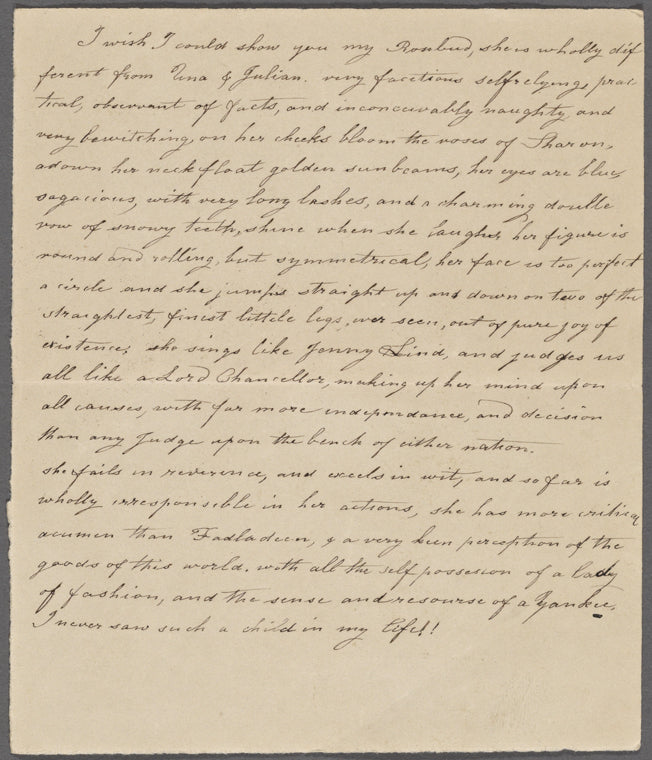 I wish I could show you my Rosebud, she is wholly dif
ferent from Una & Julian. very facetious selfrelying, prac-
tical, observant of facts, and inconceivably naughty, and
very bewitching, on her cheeks bloom the roses of Sharon,
adown her neck float golden sunbeams, her eyes are blue,
sagacious, with very long lashes, and a charming double
row of snowy teeth, shine when she laughs, her figure is
round and rolling, but symmetrical, her face is too perfect
a circle and she jumps straight up and down on two of the
straightest, finest little legs, ever seen, out of pure joy of
existence; she sings like Jenny Lind, and judges us
all like a Lord Chancellor, making up her mind upon
all causes, with far more independance, and decision
than any Judge upon the bench of either nation.
she fails in reverence, and excels in wit, and so far is
wholly irresponsible in her actions, she has more critical
acumen than Fadladeen, & a very keen perception of the
goods of this world. with all the self possesion of a lady
of fashion, and the sense and resourse of a Yankee,
I never saw such a child in my life!!